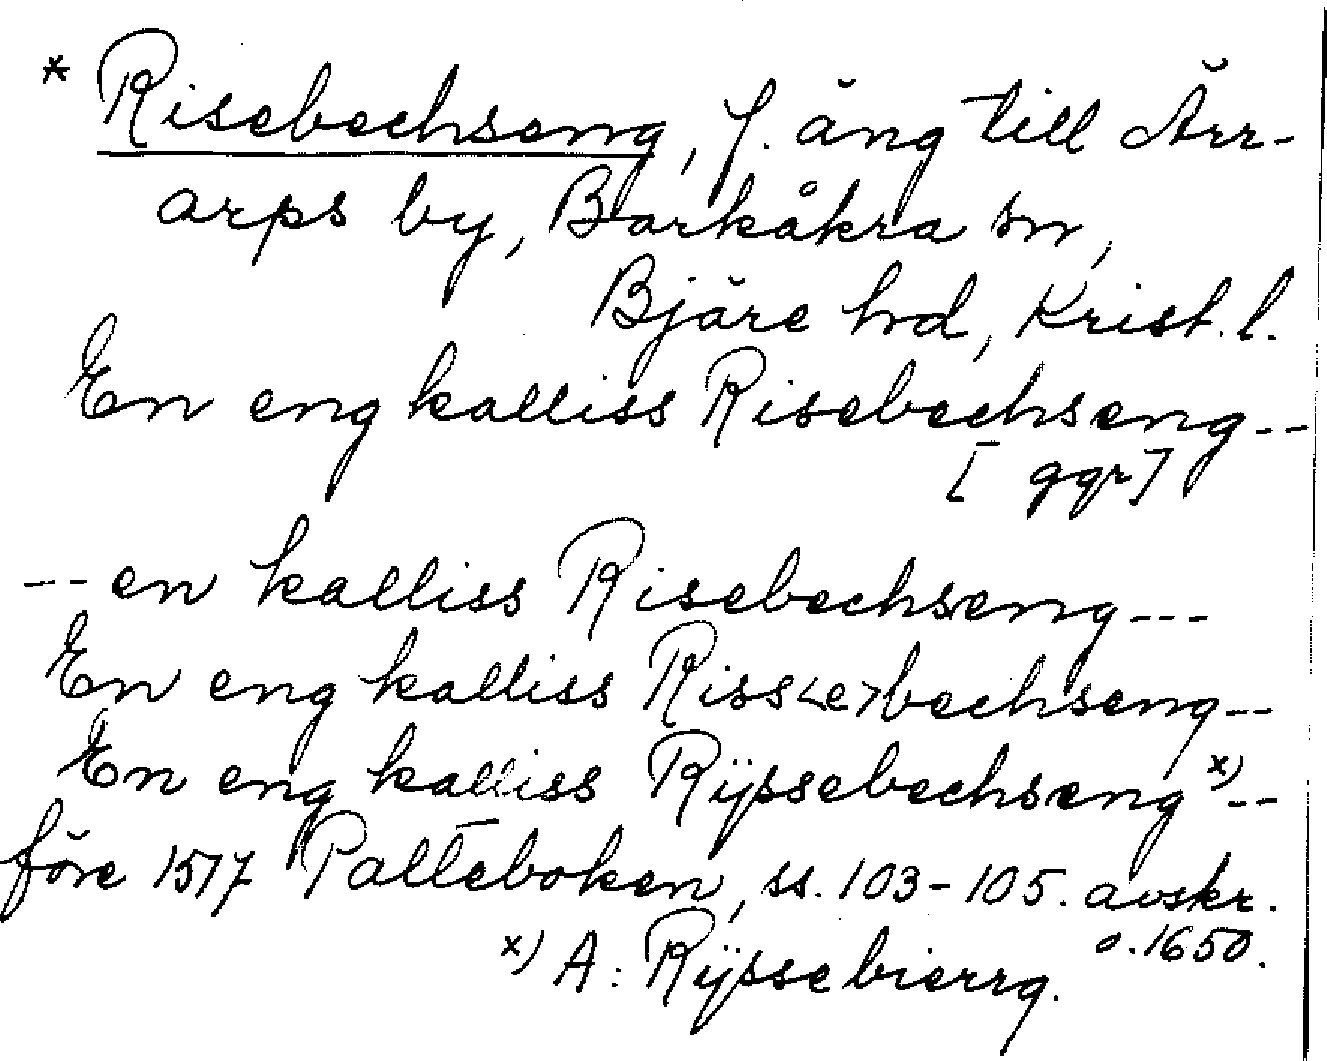 * Risebechseng, f. äng till Ärr-
arps by, Barkåkra sn,
Bjäre hd, Krist. l.
En eng kalliss Risebechseng --
[ ggr]
-- en kalliss Risebechseng ---
En eng kalliss Riss<e>bechseng --
En eng kalliss Rÿssebechseng x) --
före 1517 Palteboken, ss. 103-105. avskr.
o. 1650.
x) A: Rÿssebierrg.